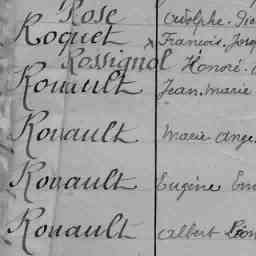 Rose Adolphe
Roquet x François
Rossignol Honoré
Rouault Jean Marie
Rouault Marie Ange
Rouault Eugène
Rouault Albert Léon